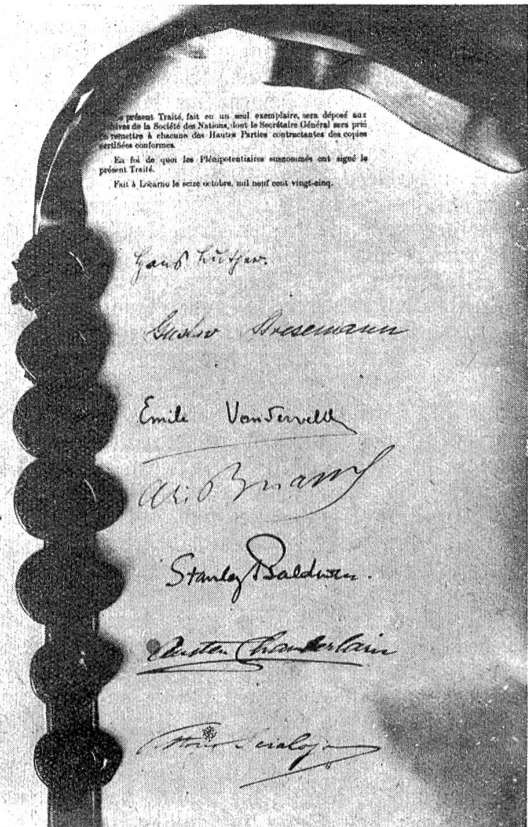 présent Traité, fait en un seul exemplaire, sera déposé aux
chives de la Société des Nations, dont le Secrétaire Général sera prié
remettre à chacune des Hautes Parties contractantes des copies
certifiées conformes.
En foi de quoi les Plénipotentiaires susnommés ont signé le
présent Traité.
Fait à Locarno le seize octobre, mil neuf cent vingt-cinq.
Hans Luther.
Gustav Stresemann
Emile Vandervelde
Ari Briand
Stanley Baldwin.
Austen Chamberlain
Vittorio Scialoja